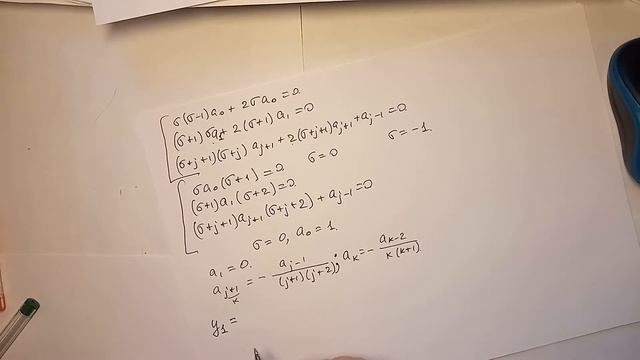 σ(σ-1)a₀ + 2σa₀ = 0
(σ+1)σa₁ + 2(σ+1)a₁ = 0
(σ+j+1)(σ+j)a_{j+1} + 2(σ+j+1)a_{j+1} + a_{j-1} = 0
σa₀(σ+1) = 0 σ=0 σ=-1
(σ+1)a₁(σ+2) = 0
(σ+j+1)a_{j+1}(σ+j+2) + a_{j-1} = 0
σ=0, a₀=1.
a₁ = 0.
a_{j+1} = - a_{j-1}/((j+1)(j+2)); a_k = - a_{k-2}/(k(k+1))
k
y₁ =